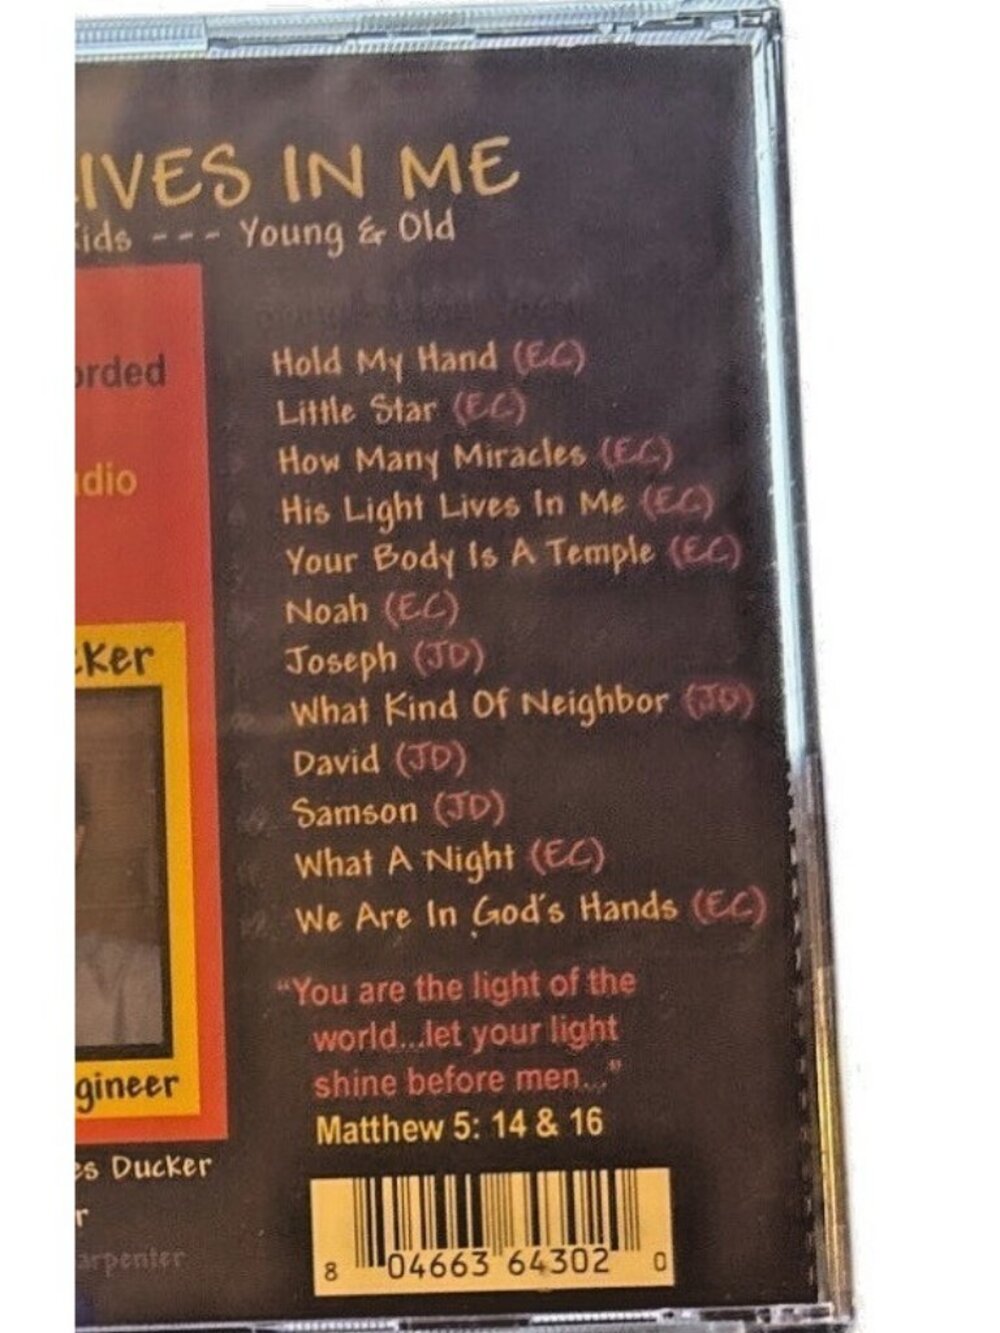 IVES IN ME
ids --- Young & Old
orded
dio
Hold My Hand (EC)
Little Star (EC)
How Many Miracles (EC)
His Light Lives In Me (EC)
Your Body Is A Temple (EC)
Noah (EC)
Joseph (JD)
What Kind Of Neighbor (JD)
David (JD)
Samson (JD)
What A Night (EC)
We Are In God's Hands (EC)
cker
gineer
es Ducker
r
arpenter
"You are the light of the
world...let your light
shine before men..."
Matthew 5: 14 & 16
8 04663 64302 0